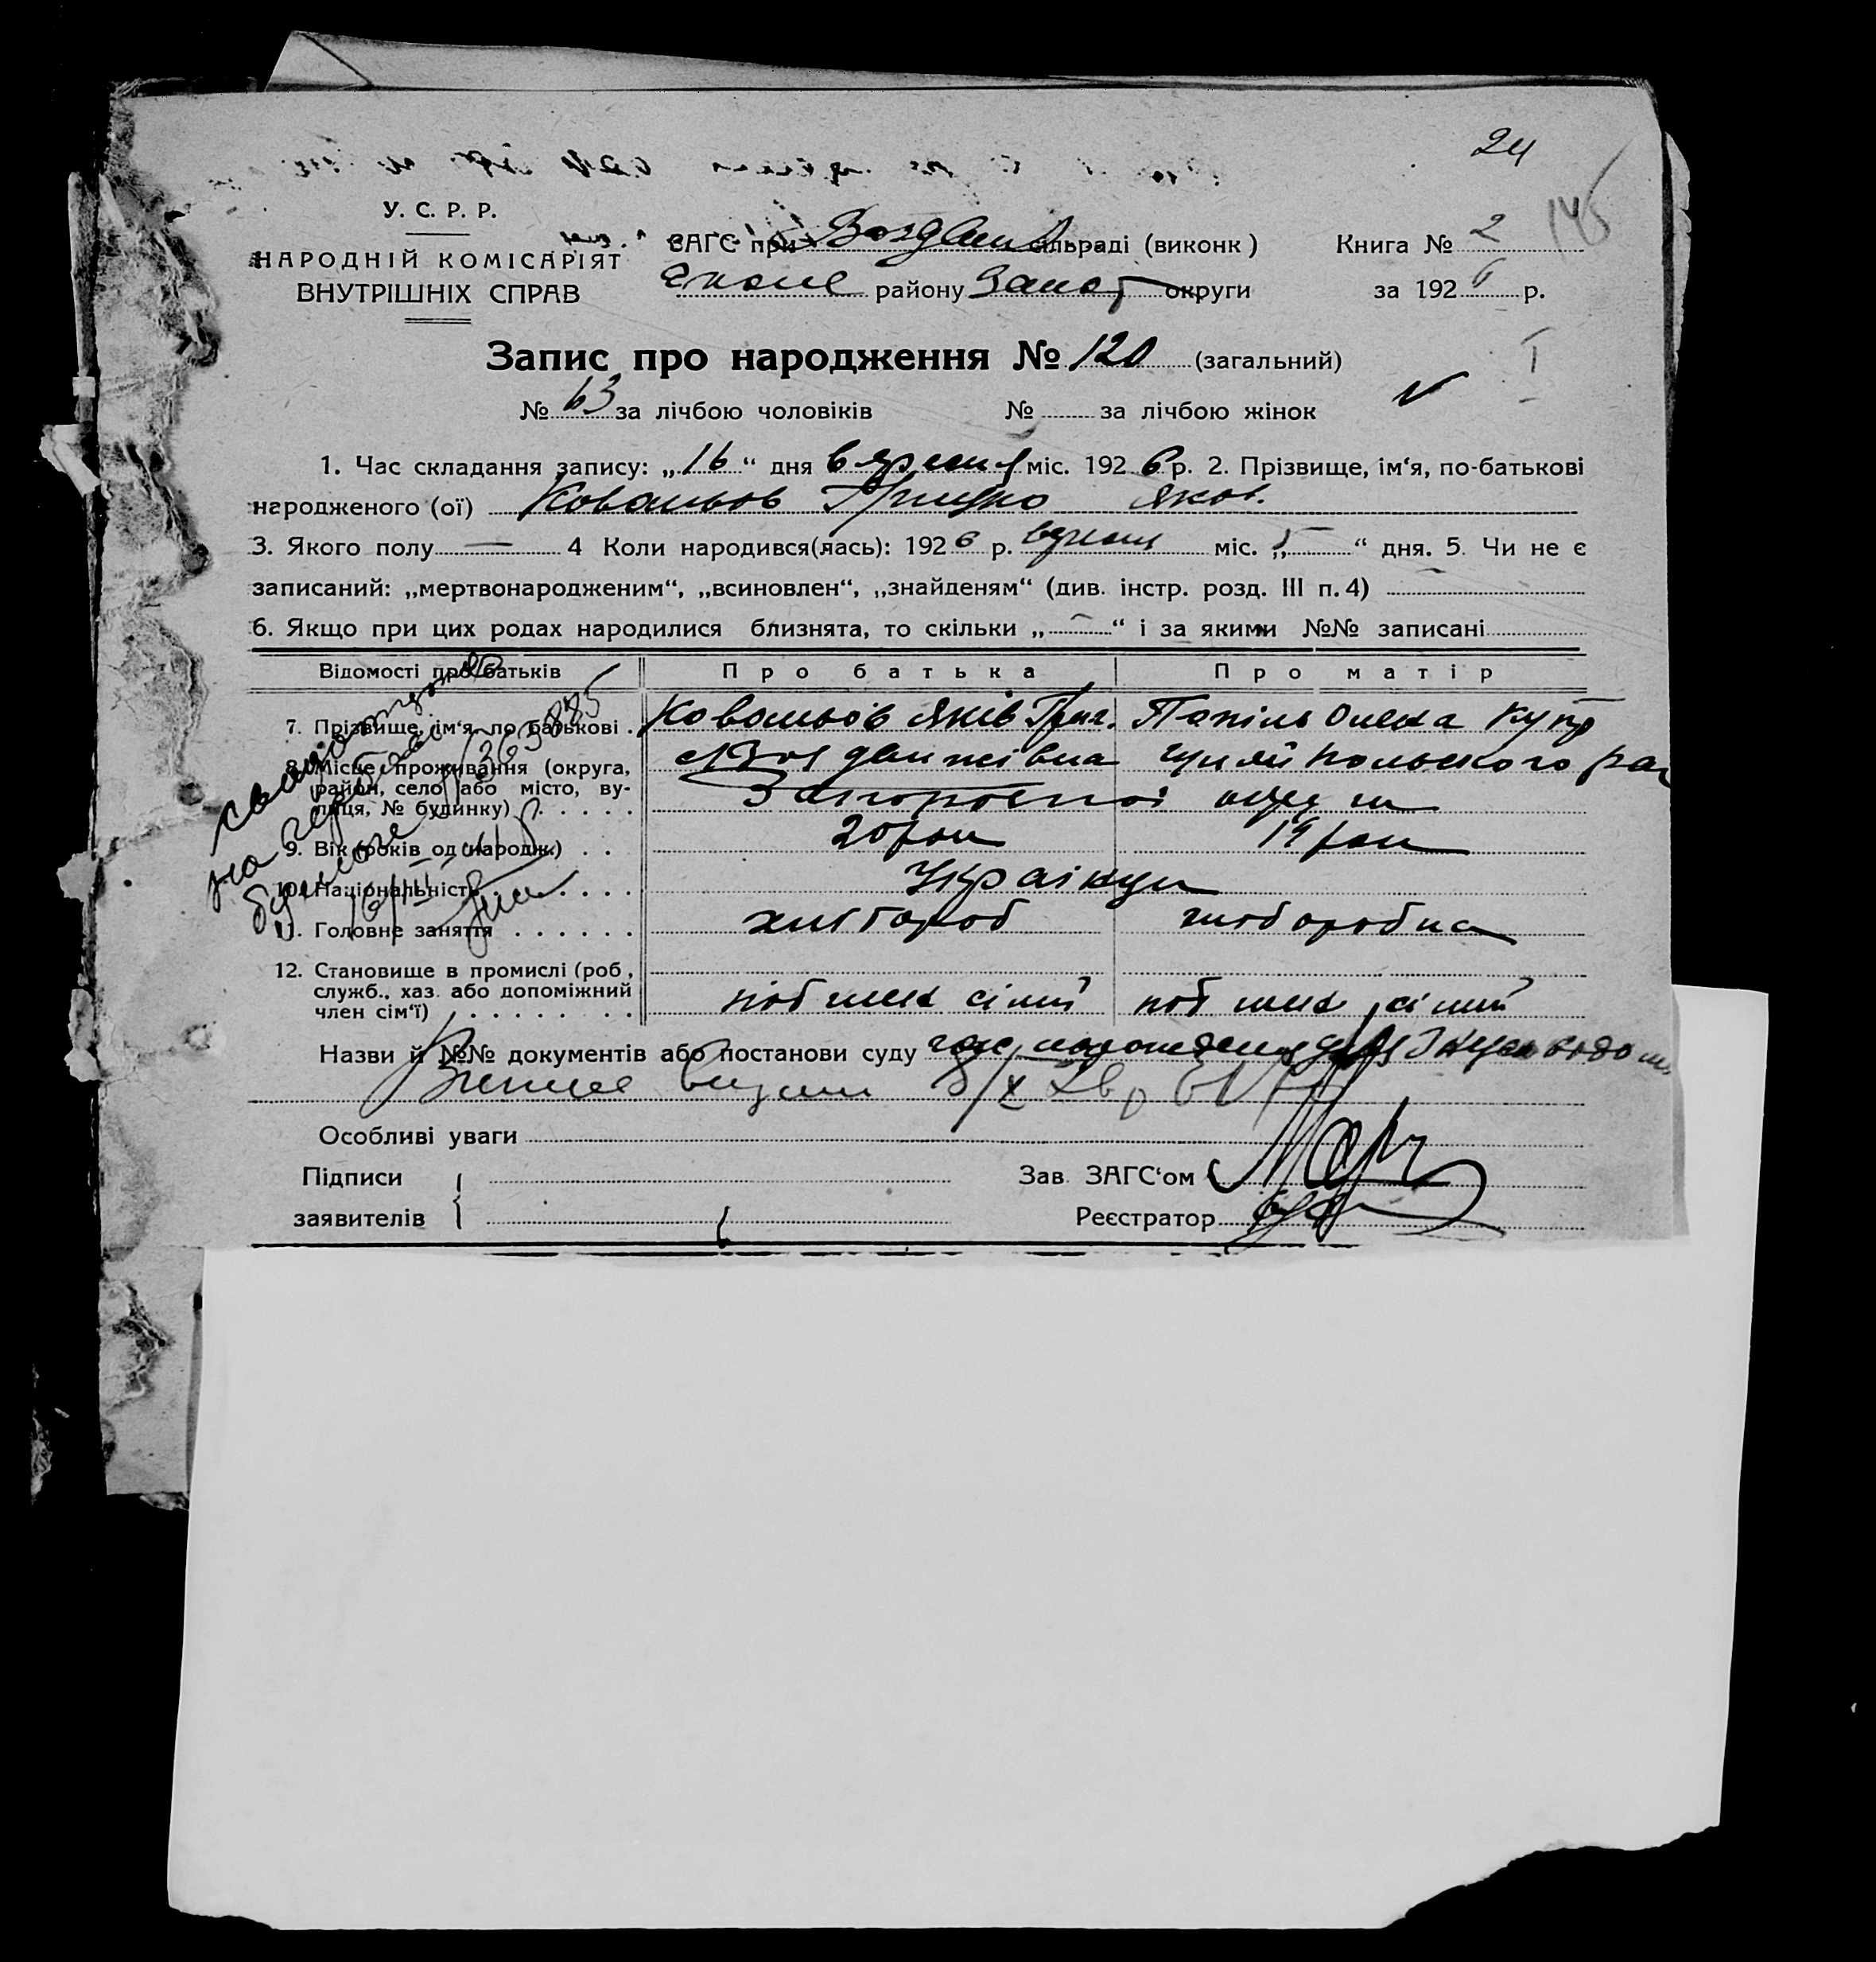 24
У. С. Р. Р.
НАРОДНІЙ КОМІСАРІЯТ
ВНУТРІШНІХ СПРАВ
ЗАГС при Воздвиж сільраді (виконк) Книга № 2 145
району Запор округи за 1926 р.
Запис про народження № 120 (загальний)
№ 63 за лічбою чоловіків № за лічбою жінок
I
1. Час складання запису: „16“ дня вересня міс. 1926 р. 2. Прізвище, ім‘я, по-батькові
народженого (ої) Ковальов Грицко Яков.
3. Якого полу — 4 Коли народився(лась): 1926 р. вересня міс. „5“ дня. 5. Чи не є
записаний: „мертвонародженим“, „всиновлен“, „знайденям“ (див. інстр. розд. III п. 4)
6. Якщо при цих родах народилися близнята, то скільки „—“ і за якими №№ записані
Відомості про батьків Про батька Про матір
7. Прізвище, ім‘я, по батькові . Ковальов Яків Григ. Папіль Олена Купр
8. Місце проживання (округа,
район, село або місто, вулиця, № будинку) . . . . . Воздвижівка Гуляйпольского рай
Запорізької округи
9. Вік (років од народж.) . . 20 рок 19 рок
10. Національність . . . . . Українци
11. Головне заняття . . . . . . хлібороб хліборобка
12. Становище в промислі (роб,
служб., хаз. або допоміжний
член сім‘ї) . . . . . . . . поб член сімї поб член сімї
Назви й №№ документів або постанови суду
Виписе видали 8/X 26 р
Особливі уваги
Підписи
заявителів
Зав. ЗАГС‘ом
Реєстратор